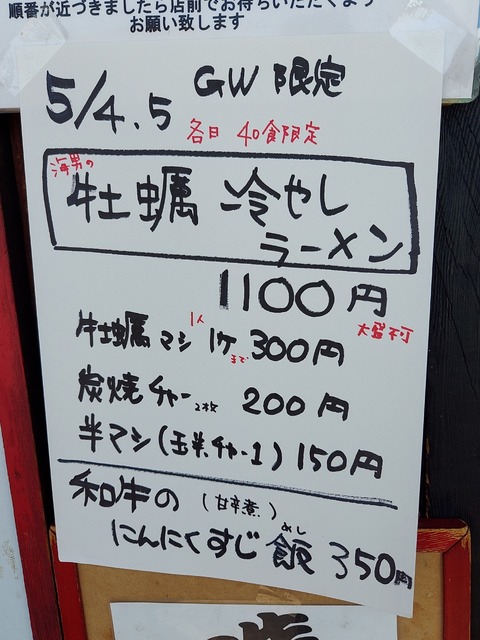 順番が近づきましたら店前でお待ちいただくよう
お願い致します
GW 限定
5/4.5
各日 40食限定
海男の
牡蠣 冷やし
ラーメン
1100円
大盛不可
牡蠣マシ 1人1ケまで 300円
炭焼チャー2枚 200円
半マシ(玉半.チャー1) 150円
和牛の (甘辛煮)
にんにくすじ飯 350円
めし